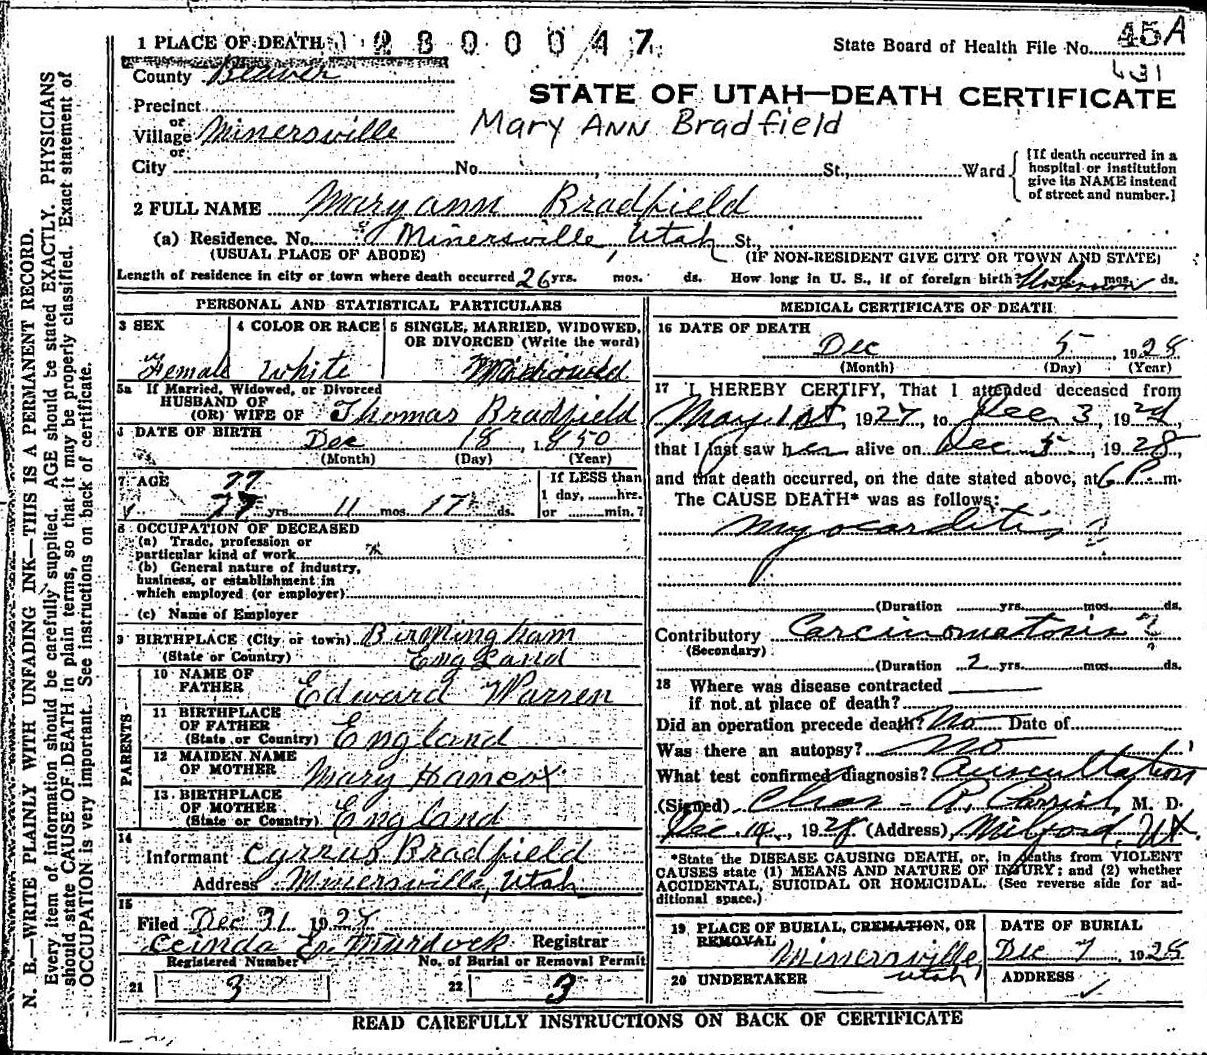 1 PLACE OF DEATH 2 8 0 0 0 4 7
State Board of Health File No. 45A
631
County Beaver
STATE OF UTAH—DEATH CERTIFICATE
Precinct
or
Village Minersville Mary Ann Bradfield
or
City No. St., Ward
[If death occurred in a
hospital or institution
give its NAME instead
of street and number.]
2 FULL NAME Mary ann Bradfield
(a) Residence. No. Minersville, Utah St.,
(USUAL PLACE OF ABODE) (IF NON-RESIDENT GIVE CITY OR TOWN AND STATE)
Length of residence in city or town where death occurred 26 yrs. mos. ds. How long in U. S., if of foreign birth? Unknown yrs. mos. ds.
N. B.—WRITE PLAINLY WITH UNFADING INK—THIS IS A PERMANENT RECORD.
Every item of information should be carefully supplied. AGE should be stated EXACTLY. PHYSICIANS
should state CAUSE OF DEATH in plain terms, so that it may be properly classified. Exact statement of
OCCUPATION is very important. See instructions on back of certificate.
PERSONAL AND STATISTICAL PARTICULARS
3 SEX 4 COLOR OR RACE 5 SINGLE, MARRIED, WIDOWED,
OR DIVORCED (Write the word)
Female White Widowed
5a If Married, Widowed, or Divorced
HUSBAND OF
(OR) WIFE OF Thomas Bradfield
6 DATE OF BIRTH Dec 18, 1850
(Month) (Day) (Year)
7 AGE 77
77 yrs. 11 mos. 17 ds.
If LESS than
1 day, hrs.
or min.?
8 OCCUPATION OF DECEASED
(a) Trade, profession or
particular kind of work
(b) General nature of industry,
business, or establishment in
which employed (or employer)
(c) Name of Employer
9 BIRTHPLACE (City or town) Birmingham
(State or Country) England
PARENTS
10 NAME OF
FATHER Edward Warren
11 BIRTHPLACE
OF FATHER
(State or Country) England
12 MAIDEN NAME
OF MOTHER Mary Hancox
13 BIRTHPLACE
OF MOTHER
(State or Country) England
14
Informant Cyrrus Bradfield
Address Minersville, Utah
15
Filed Dec 31 1928
Murdock Registrar
Registered Number No. of Burial or Removal Permit
21 3 22 3
MEDICAL CERTIFICATE OF DEATH
16 DATE OF DEATH
Dec 5, 1928
(Month) (Day) (Year)
17 I HEREBY CERTIFY, That I attended deceased from
May 1st, 1927, to Dec 3, 1928
that I last saw her alive on Dec 5, 1928,
and that death occurred, on the date stated above, at 6 P. m.
The CAUSE DEATH* was as follows:
Myocarditis ?
(Duration yrs. mos. ds.
Contributory Carcinomatosis ?
(Secondary)
(Duration 2 yrs. mos. ds.
18 Where was disease contracted
if not at place of death?
Did an operation precede death? No Date of
Was there an autopsy? No
What test confirmed diagnosis? Auscultation
(Signed) Chas. R. M. D.
Dec 14, 1928 (Address) Milford, Ut.
*State the DISEASE CAUSING DEATH, or, in deaths from VIOLENT
CAUSES state (1) MEANS AND NATURE OF INJURY; and (2) whether
ACCIDENTAL, SUICIDAL OR HOMICIDAL. (See reverse side for ad-
ditional space.)
19 PLACE OF BURIAL, CREMATION, OR
REMOVAL Minersville
Utah
DATE OF BURIAL
Dec 7, 1928
20 UNDERTAKER ADDRESS
READ CAREFULLY INSTRUCTIONS ON BACK OF CERTIFICATE